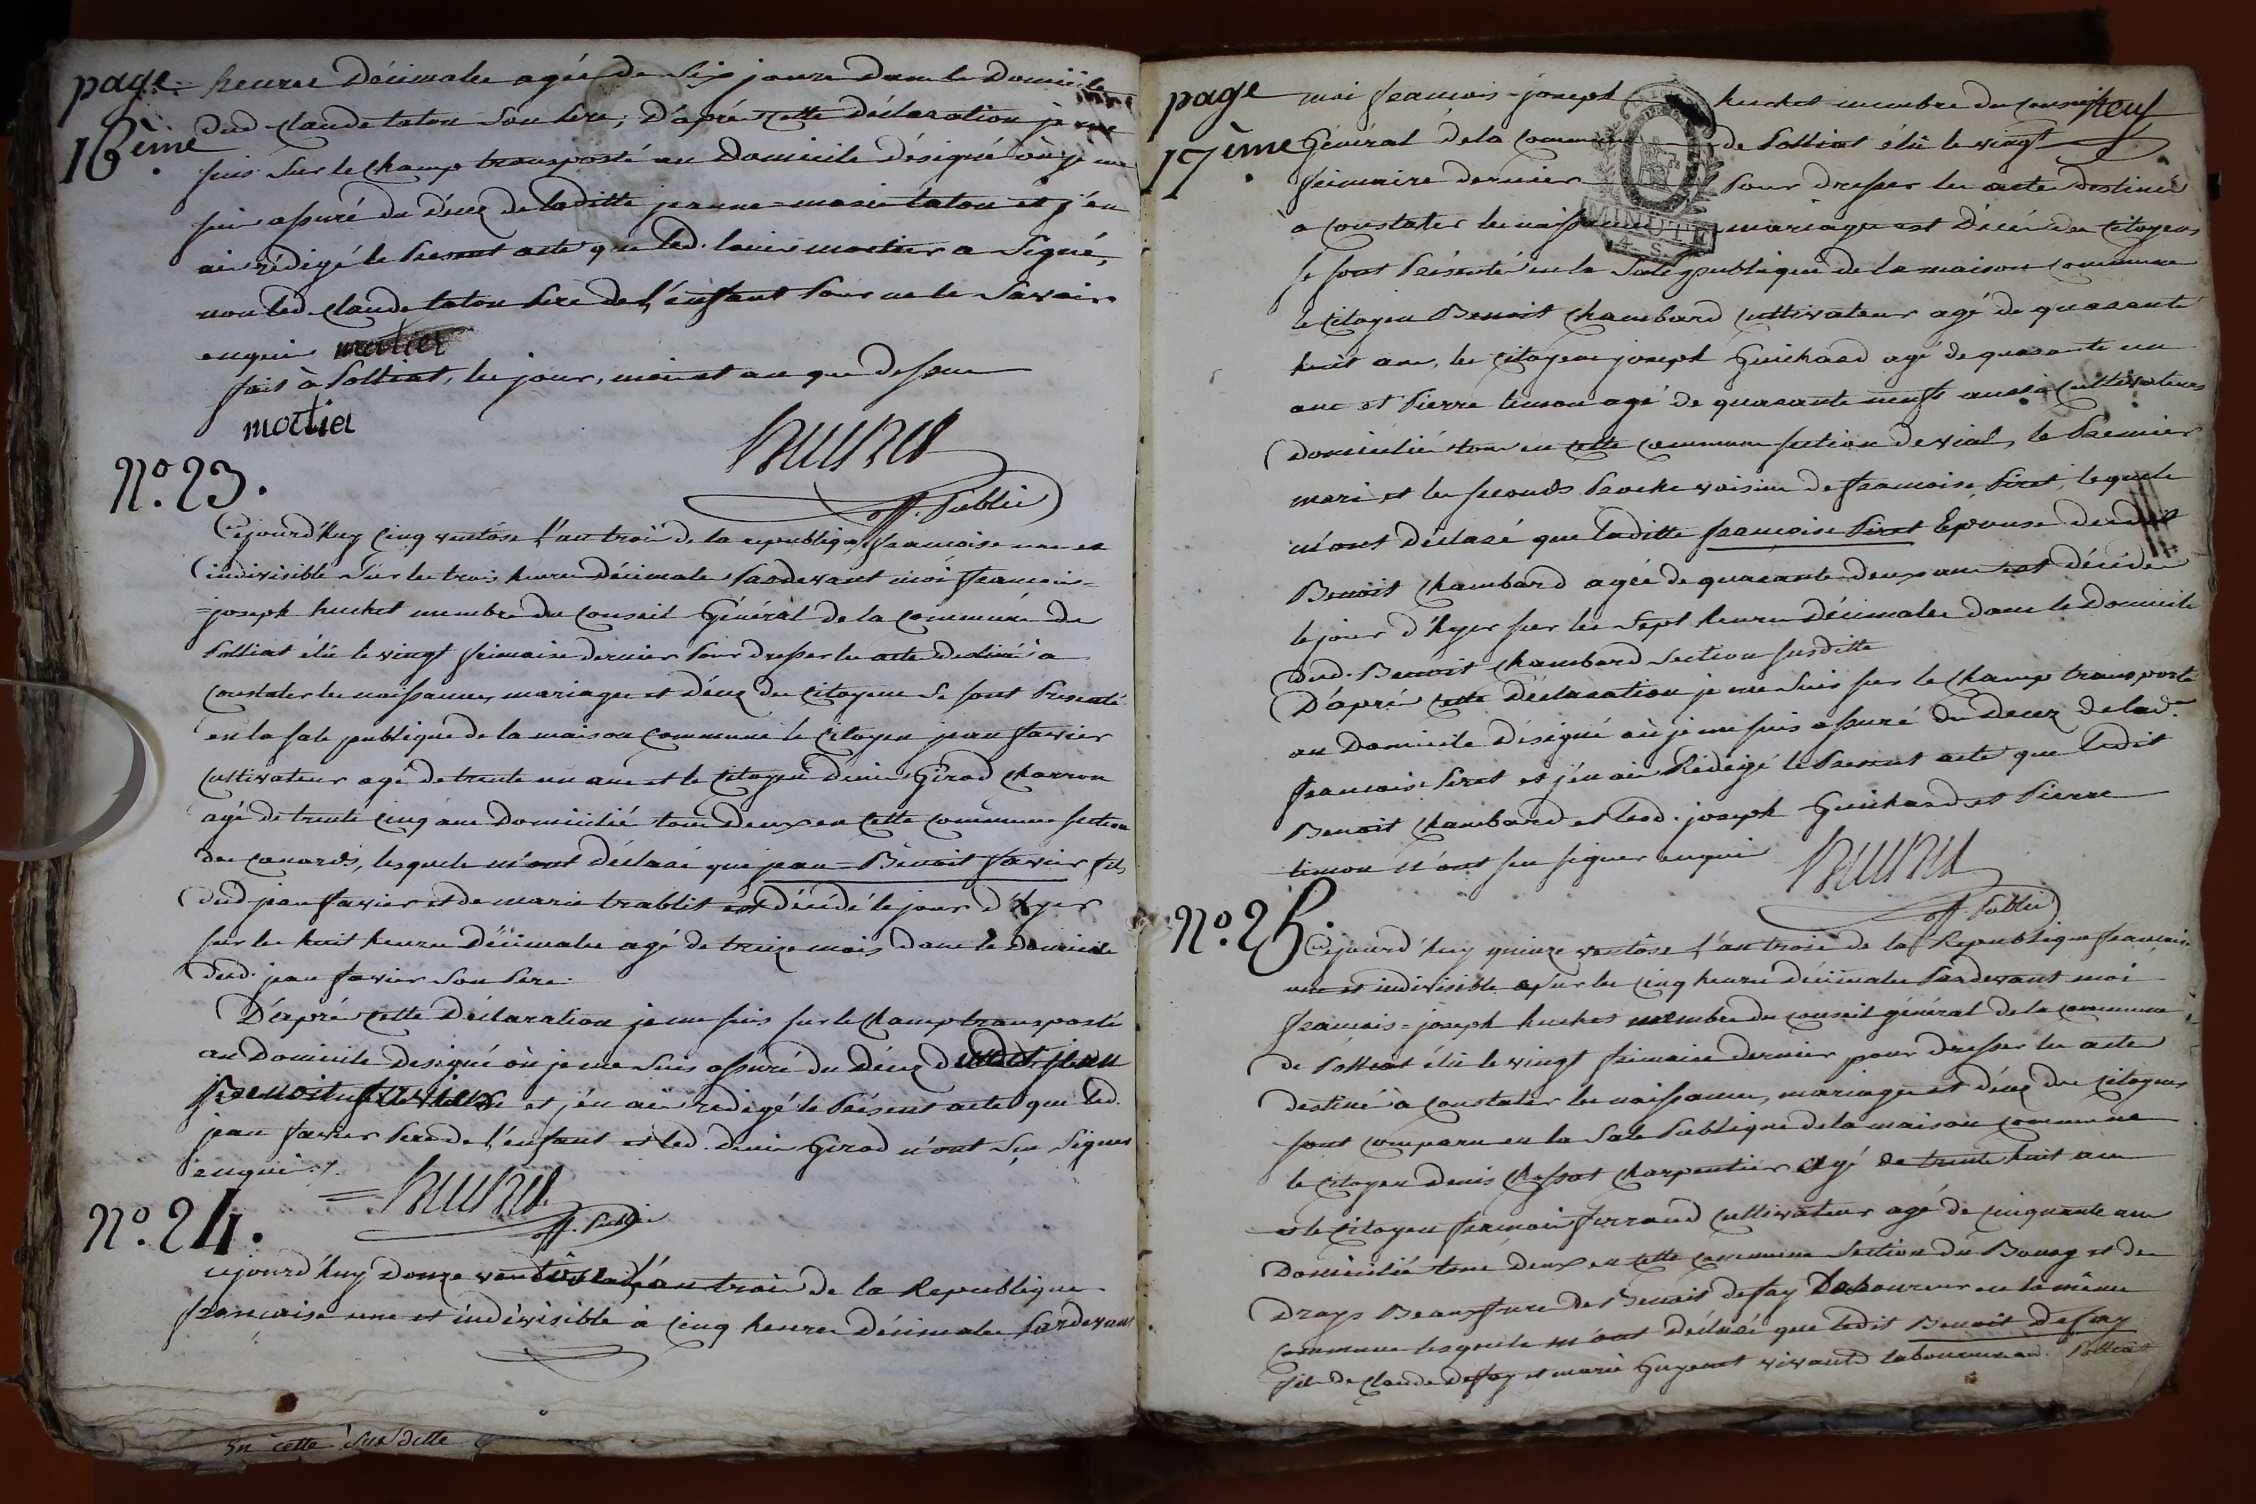 page 16ème.
heures décimales agée de Six jours dans le Domicile
dud Claude taton Son Pere; D'aprés cette déclaration je me
suis Sur le champ transporté au Domicile désigné où je me
suis assuré du décez de laditte jeanne=marie taton et j'en
ai rédigé le Present acte que led. louis mortier a Signé,
non led. Claude taton Pere de l'enfant Pour ne le Savoir
enquis
fait à Polliat, les jour, mois et an que dessus
mortier
huchet
off. Public
N.º 23.
Cejourd'huy Cinq ventôse l'an trois de la republique francoise une et
indivisible Sur les trois heures décimales Pardevant moi francois=
=joseph huchet membre du Conseil Général de la Commune de
Polliat élû le vingt frimaire dernier Pour dresser les actes destinés a
Constater les naissances, mariages et décez des Citoyens Se Sont Presenté
en la sale publique de la maison Commune le Citoyen jean favier
Cultivateur agé de trente un ans et le Citoyen denis Girod Charron
agé de trente Cinq ans domiciliés tous deux en Cette Commune Section
des Canards, lesquels m'ont déclaré que jean=Bènoit favier fils
dud jean favier et de marie trablit est décédé le jour d'hyer
sur les huit heures décimales agé de treize mois dans le domicile
dud. jean favier Son Pere.
D'aprés Cette Déclaration je me suis sur le Champ transporté
au Domicile designé où je me Suis assuré du décez dudit jean
Benoit favier et j'en ai redigé le Présent acte que led.
jean favier Pere de l'enfant et led. Denis Girod n'ont Sçu Signer
enquis ./.
huchet
off. Public
N.º 24.
cejourd'huy douze ventôse l'an trois de la Republique
francoise une et indivisible à Cinq heures Décimales Pardevant
En cette Susditte
page 17ème.
neuf
moi francois=joseph huchet membre du Conseil
Général de la Commune de Polliat élû le vingt
frimaire dernier Pour dresser les actes destinés
à constater les naissances mariages et décés des Citoyens
MINUTE
4. S.
se sont Présenté en la Sale publique de la maison Commune
le Citoyen Benoit Chambard Cultivateur agé de quarante
huit ans, les Citoyens joseph Guichard agé de quarante un
ans et Pierre timon agé de quarante neuf ans aussi Cultivateurs
domiciliés tous en cette Commune Section de vial, le Premier
mari et les seconds Proche voisins de francoise Piret, lesquels
m'ont déclaré que laditte francoise Piret Epouse dudit
Benoit Chambard agée de quarante deux ans est décédée
le jour d'hyer sur les Sept heures décimales dans le Domicile
dud. Benoit Chambard Section susditte
D'aprés Cette Déclaration je me Suis sur le Champ transporté
au Domicile désigné où je me suis assuré du Decez de lad.
francoise Piret et j'en ai Rédigé le Present acte que ledit
Benoit Chambard et led. joseph Guichard et Pierre
timon n'ont su signer enquis
huchet
off. Public
N.º 25.
Cejourd'huy quinze ventôse l'an trois de la Republique francoise
une et indivisible Sur les Cinq heures décimales Pardevant moi
francois=joseph huchet membre du conseil général de la commune
de Polliat élû le vingt frimaire dernier pour dresser les actes
destinés à Constater les naissances, mariages et décez des Citoyens
sont comparu en la Sale Publique de la maison commune
le Citoyen Denis Chossat Charpentier agé de trente huit ans
et le Citoyen francois ferrand Cultivateur agé de cinquante ans
Domiciliés tous deux en cette Commune Section du Bourg et des
Drays Beaux freres de Benoit defay laboureur en la même
Commune lesquels m'ont déclaré que ledit Benoit Defay
fils de Claude Defay et marie Guyenet vivants laboureurs aud. Polliat